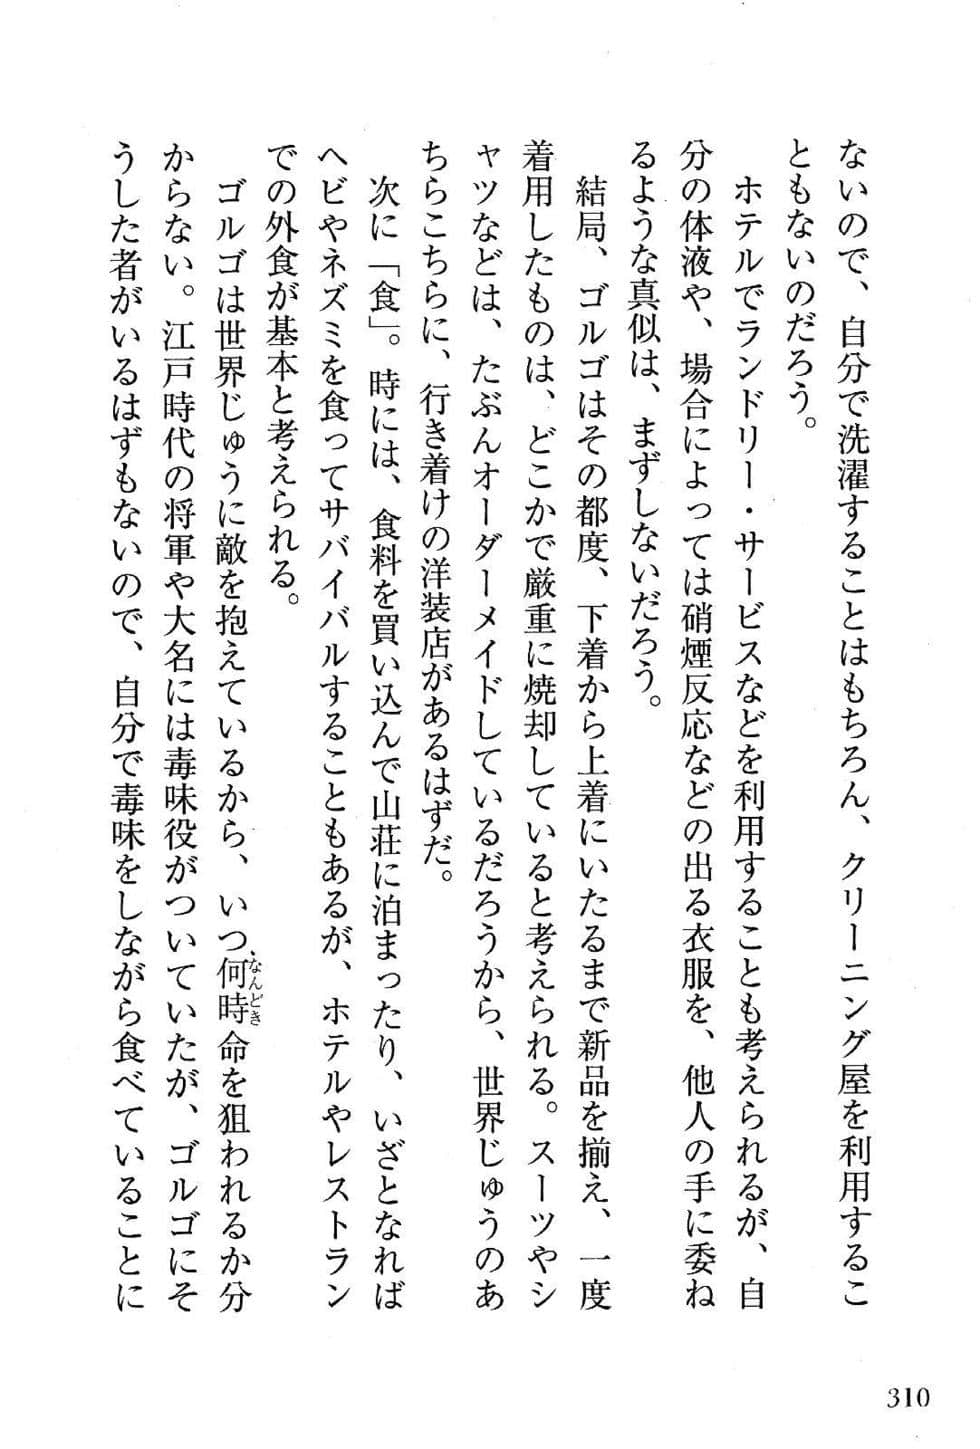 ないので、自分で洗濯することはもちろん、クリーニング屋を利用するこ
ともないのだろう。
ホテルでランドリー・サービスなどを利用することも考えられるが、自
分の体液や、場合によっては硝煙反応などの出る衣服を、他人の手に委ね
るような真似は、まずしないだろう。
結局、ゴルゴはその都度、下着から上着にいたるまで新品を揃え、一度
着用したものは、どこかで厳重に焼却していると考えられる。スーツやシ
ャツなどは、たぶんオーダーメイドしているだろうから、世界じゅうのあ
ちらこちらに、行き着けの洋装店があるはずだ。
次に「食」。時には、食料を買い込んで山荘に泊まったり、いざとなれば
ヘビやネズミを食ってサバイバルすることもあるが、ホテルやレストラン
での外食が基本と考えられる。
ゴルゴは世界じゅうに敵を抱えているから、いつ何時命を狙われるか分
なんどき
からない。江戸時代の将軍や大名には毒味役がついていたが、ゴルゴにそ
うした者がいるはずもないので、自分で毒味をしながら食べていることに
310